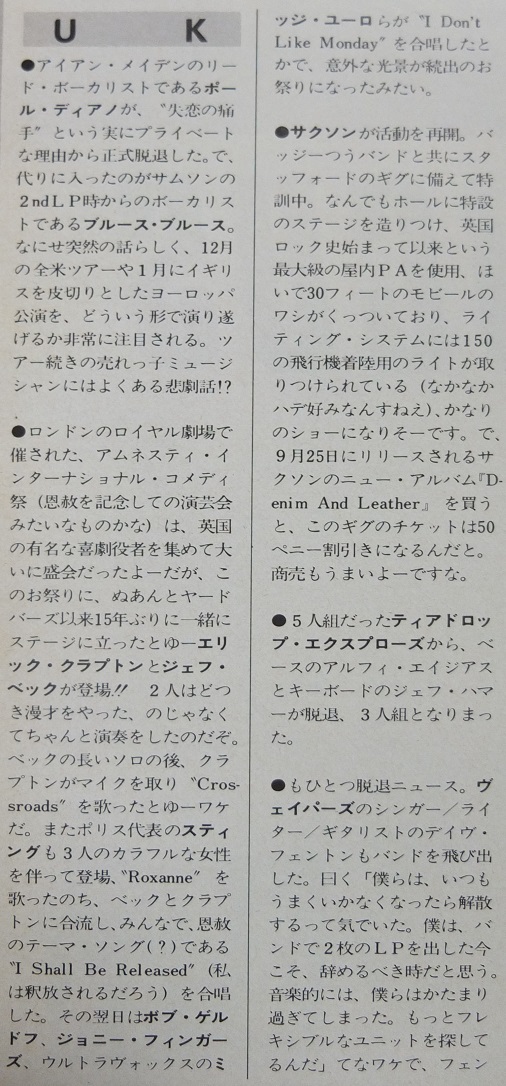 UK
●アイアン・メイデンのリー
ド・ボーカリストであるポー
ル・ディアノが、〝失恋の痛
手〞という実にプライベート
な理由から正式脱退した。で、
代りに入ったのがサムソンの
2ndLP時からのボーカリス
トであるブルース・ブルース。
なにせ突然の話らしく、12月
の全米ツアーや1月にイギリ
スを皮切りとしたヨーロッパ
公演を、どういう形で演り遂
げるか非常に注目される。ツ
アー続きの売れっ子ミュージ
シャンにはよくある悲劇話!?
●ロンドンのロイヤル劇場で
催された、アムネスティ・イ
ンターナショナル・コメディ
祭（恩赦を記念しての演芸会
みたいなものかな）は、英国
の有名な喜劇役者を集めて大
いに盛会だったよーだが、こ
のお祭りに、ぬあんとヤード
バーズ以来15年ぶりに一緒に
ステージに立ったとゆーエリ
ック・クラプトンとジェフ・
ベックが登場!!　2人はどつ
き漫才をやった、のじゃなく
てちゃんと演奏をしたのだぞ。
ベックの長いソロの後、クラ
プトンがマイクを取り〝Cros-
sroads〞を歌ったとゆーワケ
だ。またポリス代表のスティ
ングも3人のカラフルな女性
を伴って登場、〝Roxanne〞を
歌ったのち、ベックとクラプ
トンに合流し、みんなで、恩赦
のテーマ・ソング(？)である
〝I Shall Be Released〞（私
は釈放されるだろう）を合唱
した。その翌日はボブ・ゲル
ドフ、ジョニー・フィンガー
ズ、ウルトラヴォックスのミ
ッジ・ユーロらが〝I Don't
Like Monday〞を合唱したと
かで、意外な光景が続出のお
祭りになったみたい。
●サクソンが活動を再開。バ
ッジーつうバンドと共にスタ
ッフォードのギグに備えて特
訓中。なんでもホールに特設
のステージを造りつけ、英国
ロック史始まって以来という
最大級の屋内PAを使用、ほ
いで30フィートのモビールの
ワシがくっついており、ライ
ティング・システムには150
の飛行機着陸用のライトが取
りつけられている（なかなか
ハデ好みなんすねえ）、かなり
のショーになりそーです。で、
9月25日にリリースされるサ
クソンのニュー・アルバム『D-
enim And Leather』を買う
と、このギグのチケットは50
ペニー割引きになるんだと。
商売もうまいよーですな。
●5人組だったティアドロッ
プ・エクスプローズから、ベ
ースのアルフィ・エイジアス
とキーボードのジェフ・ハマ
ーが脱退、3人組となりまっ
た。
●もひとつ脱退ニュース。ヴ
ェイパーズのシンガー／ライ
ター／ギタリストのデイヴ・
フェントンもバンドを飛び出
した。曰く「僕らは、いつも
うまくいかなくなったら解散
するって気でいた。僕は、バ
ンドで2枚のLPを出した今
こそ、辞めるべき時だと思う。
音楽的には、僕らはかたまり
過ぎてしまった。もっとフレ
キシブルなユニットを探して
るんだ」てなワケで、フェン